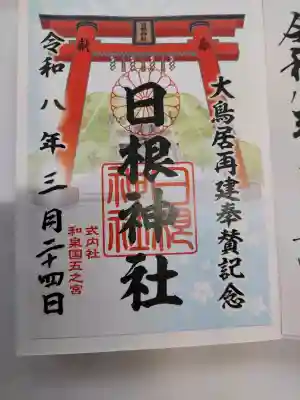 大鳥居再建奉賛記念
奉
献
日根神社
日根
神社
式内社
和泉国五之宮
令和八年三月二十四日